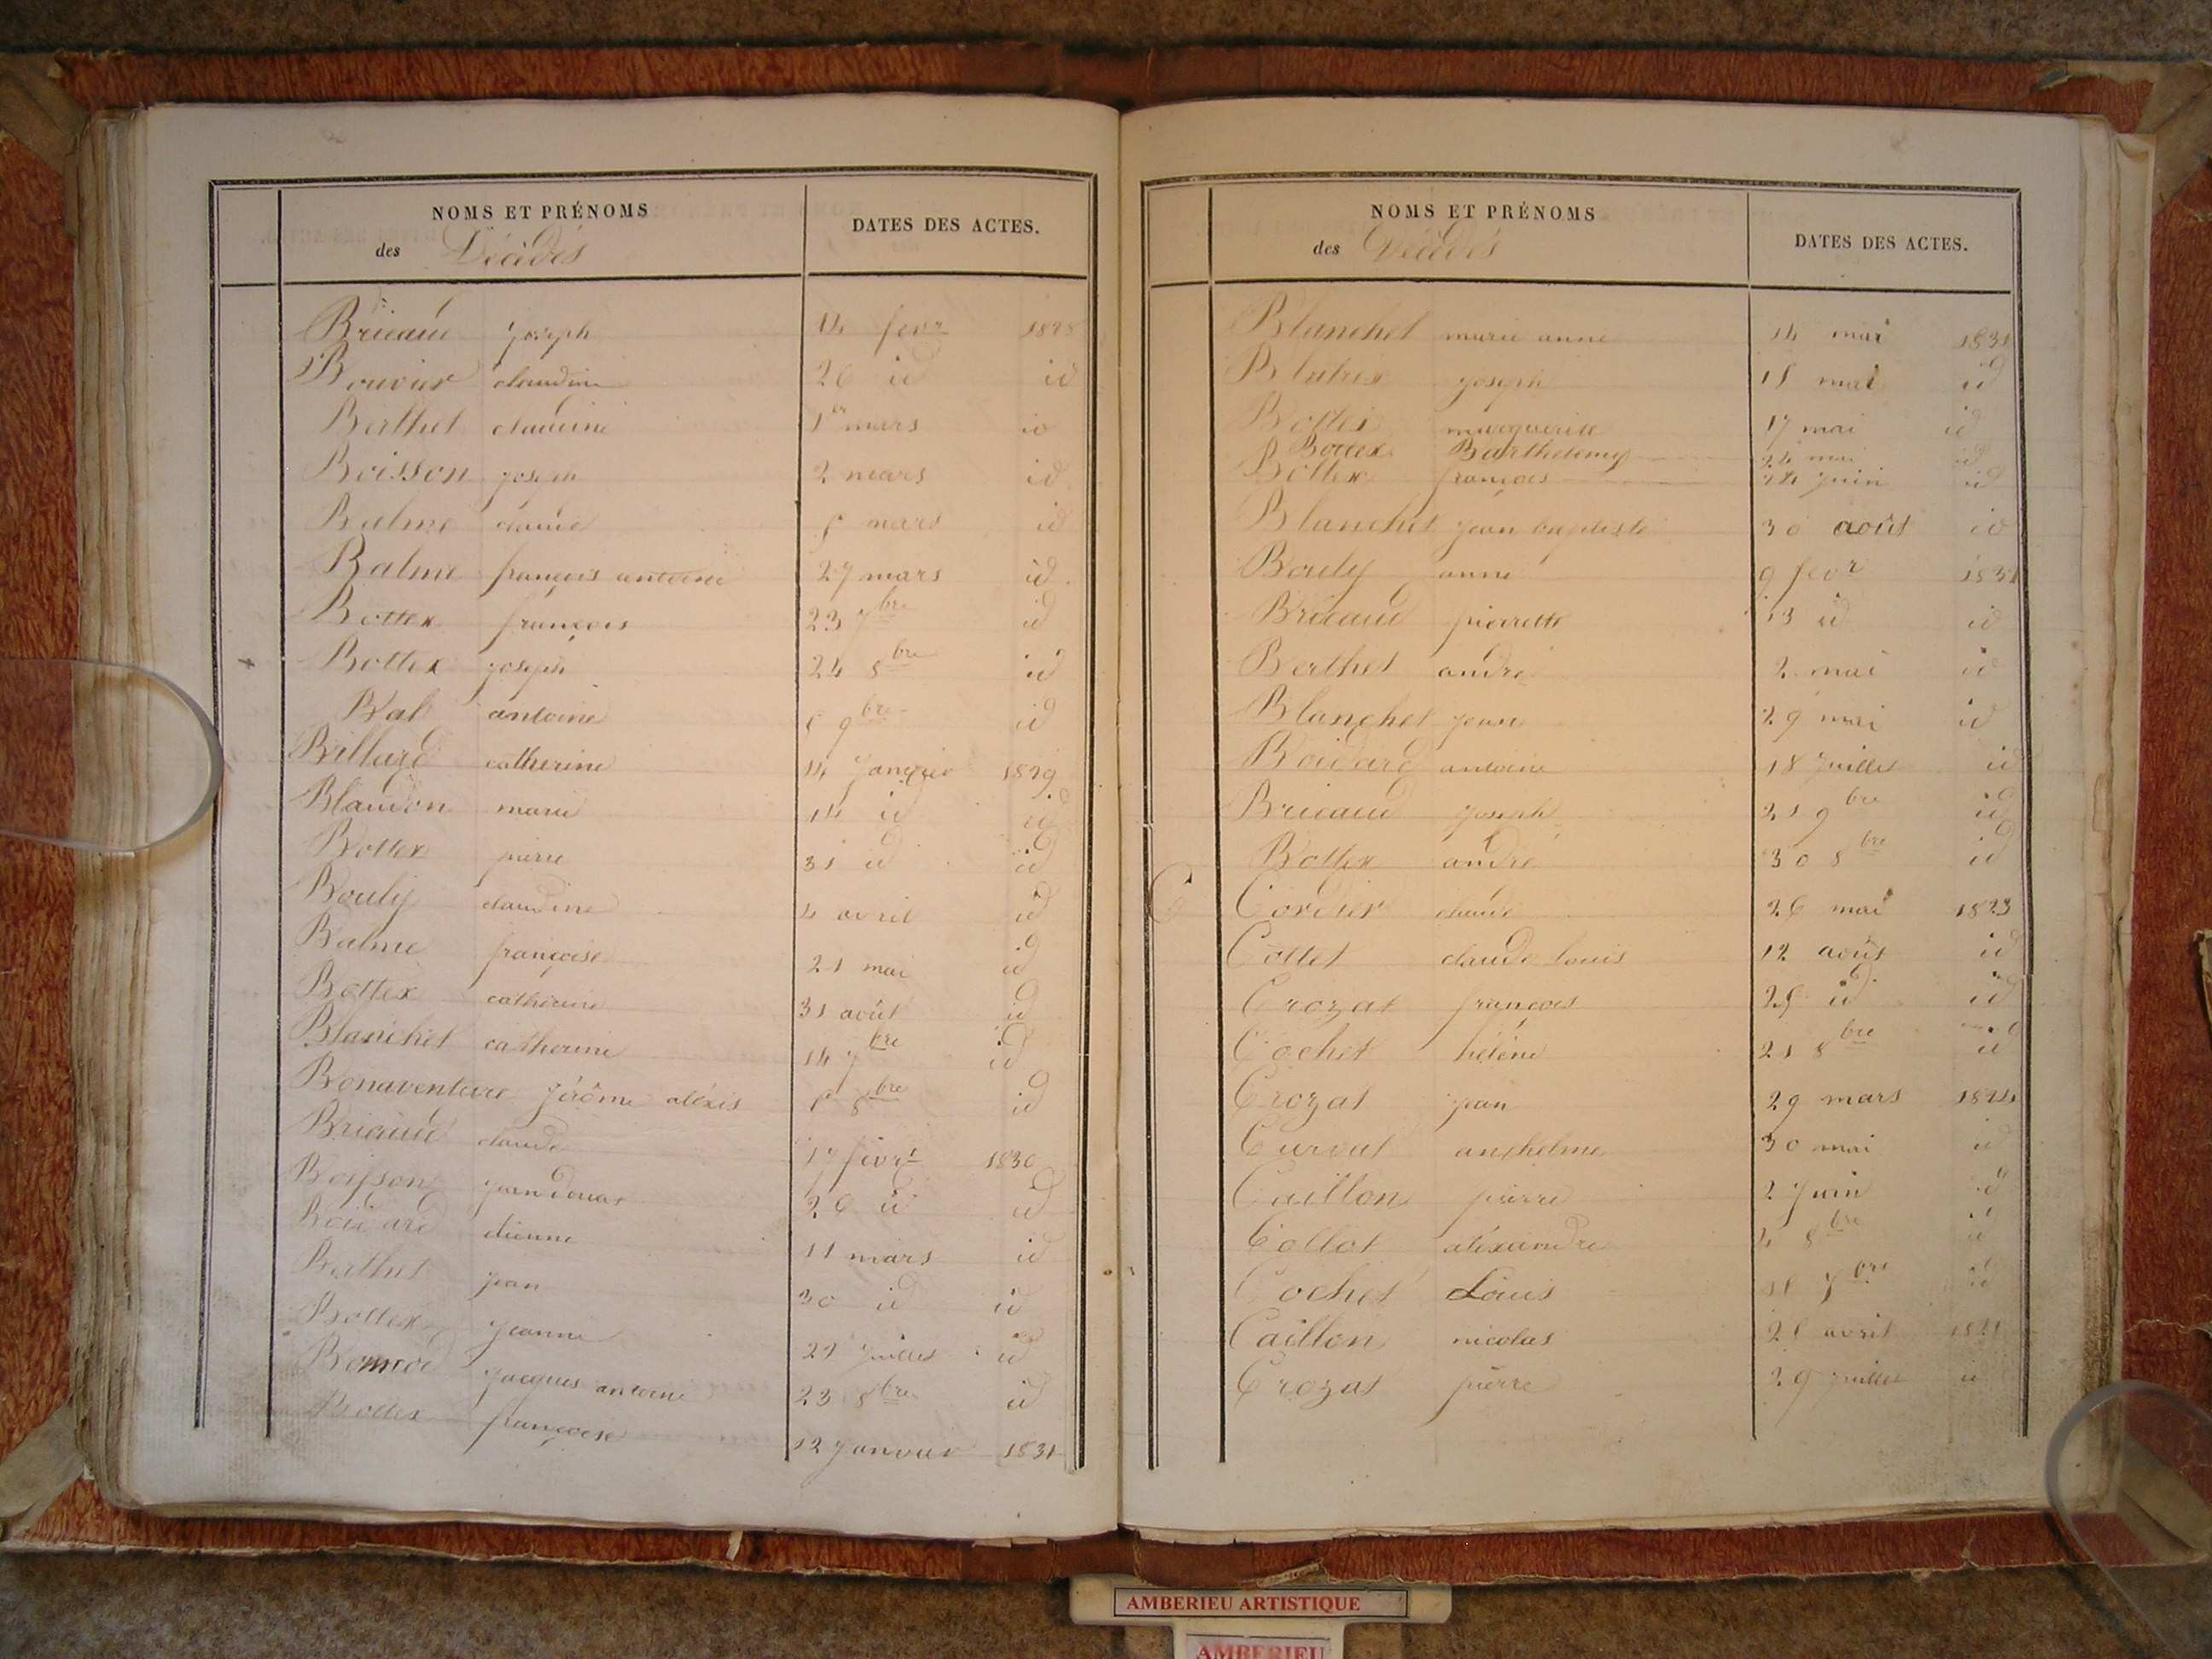 NOMS ET PRÉNOMS
des Décédés
DATES DES ACTES.
Bricaud joseph 14 fevr 1828
Bouvier claudine 26 id id
Berthet claudine 1er mars id
Boisson joseph 2 mars id
Balme claude 5 mars id
Balme françois antoine 27 mars id
Bottex françois 23 7bre id
Bottex joseph 24 8bre id
Bal antoine 6 9bre id
Billard catherine 14 Janvier 1829
Blandon marie 14 id id
Bottex pierre 31 id id
Bouly claudine 4 avril id
Balme françoise 21 mai id
Bottex catherine 31 août id
Blanchet catherine 14 7bre id
Bonaventure Jérôme aléxis 8bre id
Bricaud claude fevr 1830
Boisson jean 26 id id
Boidard etienne 11 mars id
Berthet jean 30 id id
Bottex Jeanne 29 Juillet id
Jacques antoine 23 8bre id
Bottex françoise 12 Janvier 1831
NOMS ET PRÉNOMS
des Décédés
DATES DES ACTES.
Blanchet marie anne 14 mai 1831
Blatrix joseph 15 mai id
Bottex marguerite 17 mai id
Bottex Barthelemy 24 mai id
Bottex françois 24 juin id
Blanchet jean baptiste 30 août id
Bouly anne 9 fevr 1832
Bricaud pierrette 13 id id
Berthet andré 2 mai id
Blanchet jean 29 mai id
Boidard antoine 18 Juillet id
Bricaud joseph 21 9bre id
Bottex andré 30 8bre id
C Cordier claude 26 mai 1823
Cottet claude louis 12 août id
Crozat françois 25 id id
Cochet hélène 21 8bre id
Crozat jean 29 mars 1824
Curvat anthelme 30 mai id
Caillon pierre 2 Juin id
Collot aléxandre 4 8bre id
Cochet Louis bre id
Caillon nicolas 25 avril
Crozat pierre 29 juillet id
AMBERIEU ARTISTIQUE
AMBERIEU